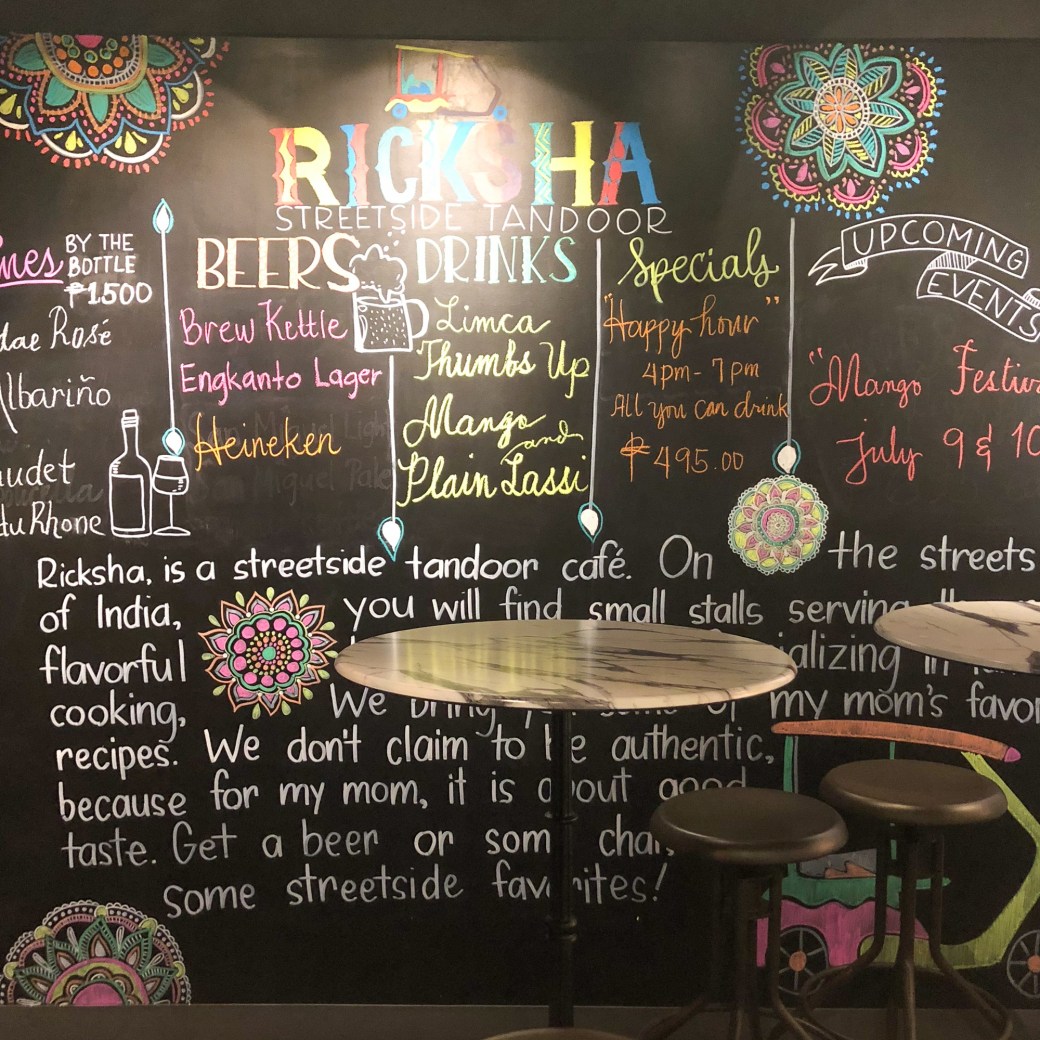 RICKSHA
STREETSIDE TANDOOR
BY THE
BOTTLE
₱1500
Rosé
Albariño
du Rhone
BEERS
Brew Kettle
Engkanto Lager
Heineken
San Miguel Light
San Miguel Pale
DRINKS
Limca
Thumbs Up
Mango and
Plain Lassi
Specials
"Happy hour"
4pm - 7pm
All you can drink
₱495.00
UPCOMING
EVENTS
"Mango
July 9 & 10
Ricksha, is a streetside tandoor café. On the streets
of India, you will find small stalls serving
flavorful
cooking, We bring you some of my mom's
recipes. We don't claim to be authentic,
because for my mom, it is about good
taste. Get a beer or some
some streetside favorites!